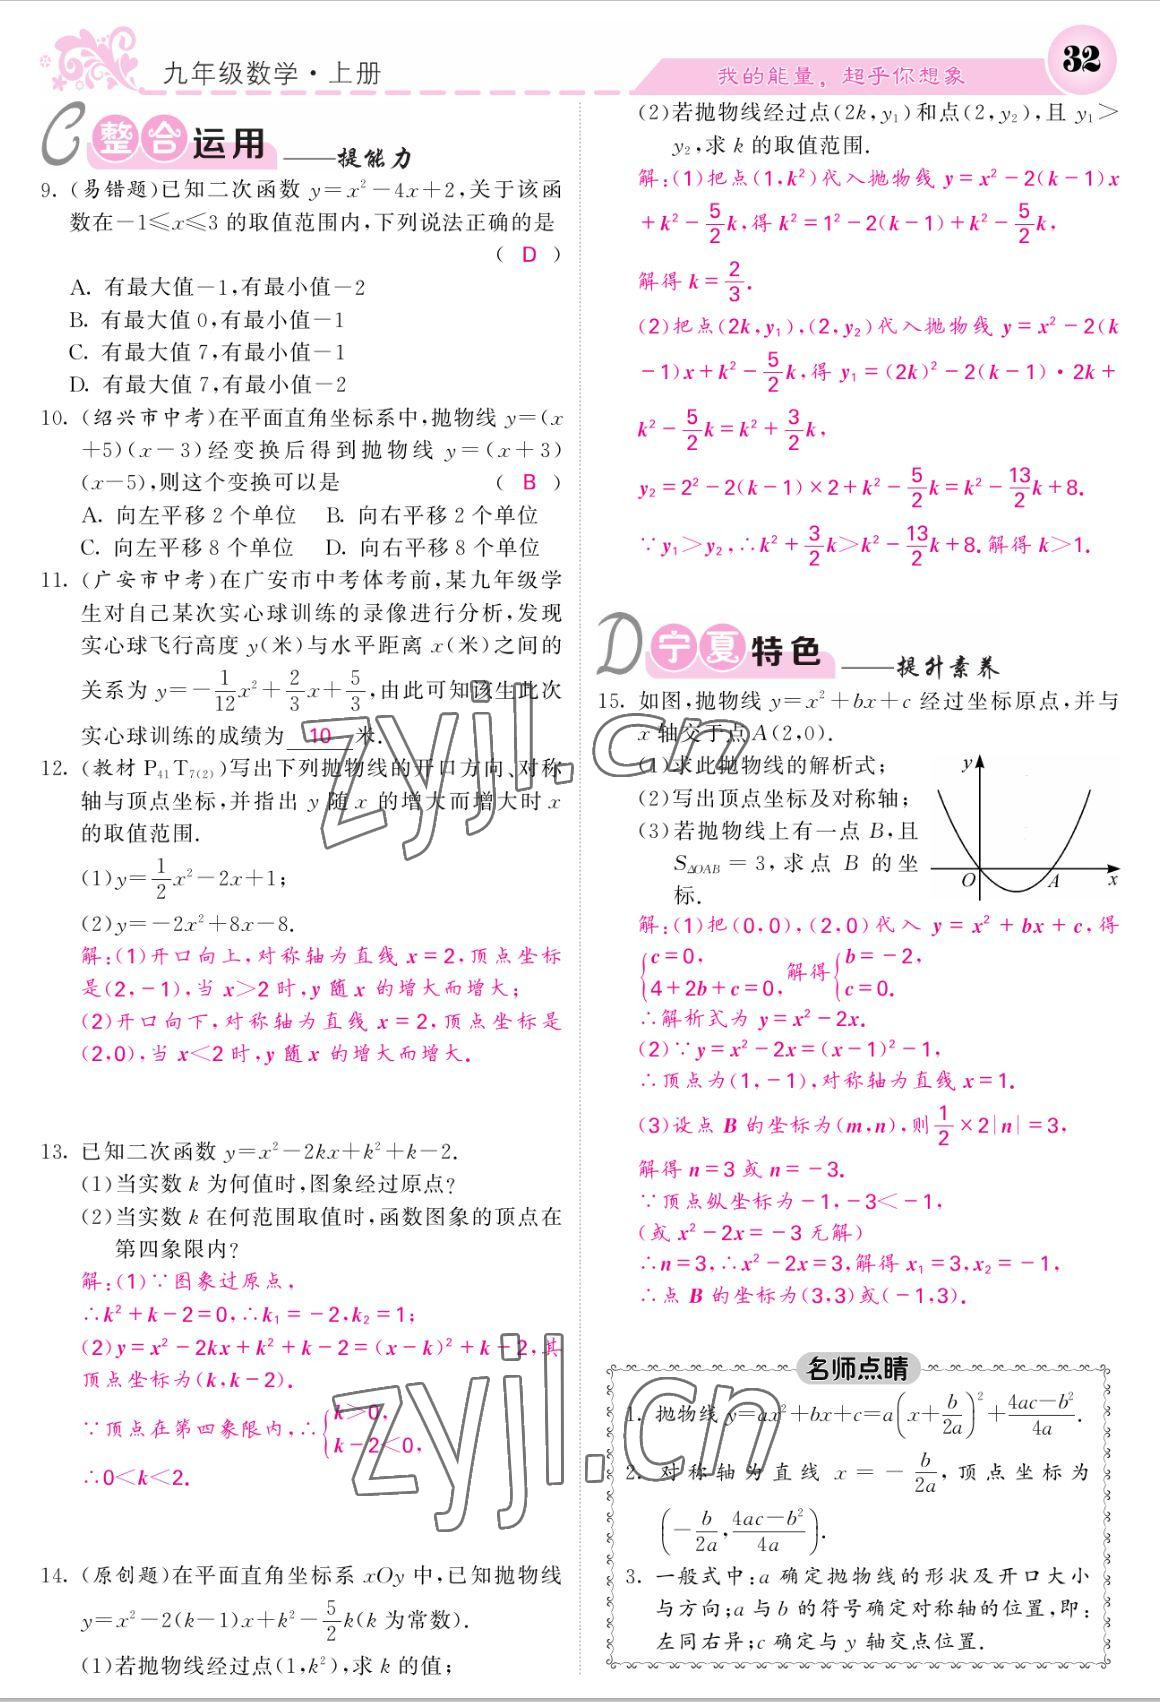 九年级数学·上册
我的能量，超乎你想象
32
C 整合运用 ——提能力
9. (易错题)已知二次函数 y=x²-4x+2,关于该函
数在-1≤x≤3 的取值范围内,下列说法正确的是
( D )
A. 有最大值-1,有最小值-2
B. 有最大值 0,有最小值-1
C. 有最大值 7,有最小值-1
D. 有最大值 7,有最小值-2
10. (绍兴市中考)在平面直角坐标系中,抛物线 y=(x
+5)(x-3)经变换后得到抛物线 y=(x+3)
(x-5),则这个变换可以是 ( B )
A. 向左平移 2 个单位 B. 向右平移 2 个单位
C. 向左平移 8 个单位 D. 向右平移 8 个单位
11. (广安市中考)在广安市中考体考前,某九年级学
生对自己某次实心球训练的录像进行分析,发现
实心球飞行高度 y(米)与水平距离 x(米)之间的
关系为 y=-1/12x²+2/3x+5/3,由此可知该生此次
实心球训练的成绩为 10 米.
12. (教材 P₄₁T₇₍₂₎)写出下列抛物线的开口方向、对称
轴与顶点坐标,并指出 y 随 x 的增大而增大时 x
的取值范围.
(1)y=1/2x²-2x+1;
(2)y=-2x²+8x-8.
解:(1)开口向上,对称轴为直线 x=2,顶点坐标
是(2,-1),当 x>2 时,y 随 x 的增大而增大;
(2)开口向下,对称轴为直线 x=2,顶点坐标是
(2,0),当 x<2 时,y 随 x 的增大而增大.
13. 已知二次函数 y=x²-2kx+k²+k-2.
(1)当实数 k 为何值时,图象经过原点?
(2)当实数 k 在何范围取值时,函数图象的顶点在
第四象限内?
解:(1)∵图象过原点,
∴k²+k-2=0,∴k₁=-2,k₂=1;
(2)y=x²-2kx+k²+k-2=(x-k)²+k-2,其
顶点坐标为(k,k-2).
∵顶点在第四象限内,∴{k>0,
k-2<0,
∴0<k<2.
14. (原创题)在平面直角坐标系 xOy 中,已知抛物线
y=x²-2(k-1)x+k²-5/2k(k 为常数).
(1)若抛物线经过点(1,k²),求 k 的值;
(2)若抛物线经过点(2k,y₁)和点(2,y₂),且 y₁>
y₂,求 k 的取值范围.
解:(1)把点(1,k²)代入抛物线 y=x²-2(k-1)x
+k²-5/2k,得 k²=1²-2(k-1)+k²-5/2k,
解得 k=2/3.
(2)把点(2k,y₁),(2,y₂)代入抛物线 y=x²-2(k
-1)x+k²-5/2k,得 y₁=(2k)²-2(k-1)·2k+
k²-5/2k=k²+3/2k,
y₂=2²-2(k-1)×2+k²-5/2k=k²-13/2k+8.
∵y₁>y₂,∴k²+3/2k>k²-13/2k+8.解得 k>1.
D 宁夏特色 ——提升素养
15. 如图,抛物线 y=x²+bx+c 经过坐标原点,并与
x 轴交于点A(2,0).
(1)求此抛物线的解析式;
(2)写出顶点坐标及对称轴;
(3)若抛物线上有一点 B,且
S△OAB=3,求点 B 的坐
标.
y
O
A
x
解:(1)把(0,0),(2,0)代入 y=x²+bx+c,得
{c=0,
4+2b+c=0, 解得{b=-2,
c=0.
∴解析式为 y=x²-2x.
(2)∵y=x²-2x=(x-1)²-1,
∴顶点为(1,-1),对称轴为直线 x=1.
(3)设点 B 的坐标为(m,n),则1/2×2|n|=3,
解得 n=3 或 n=-3.
∵顶点纵坐标为-1,-3<-1,
(或 x²-2x=-3 无解)
∴n=3,∴x²-2x=3,解得 x₁=3,x₂=-1,
∴点 B 的坐标为(3,3)或(-1,3).
名师点睛
1. 抛物线 y=ax²+bx+c=a(x+b/2a)²+(4ac-b²)/4a.
2. 对称轴为直线 x=-b/2a,顶点坐标为
(-b/2a,(4ac-b²)/4a).
3. 一般式中:a 确定抛物线的形状及开口大小
与方向;a 与 b 的符号确定对称轴的位置,即:
左同右异;c 确定与 y 轴交点位置.
zyjl.cn
zyjl.cn